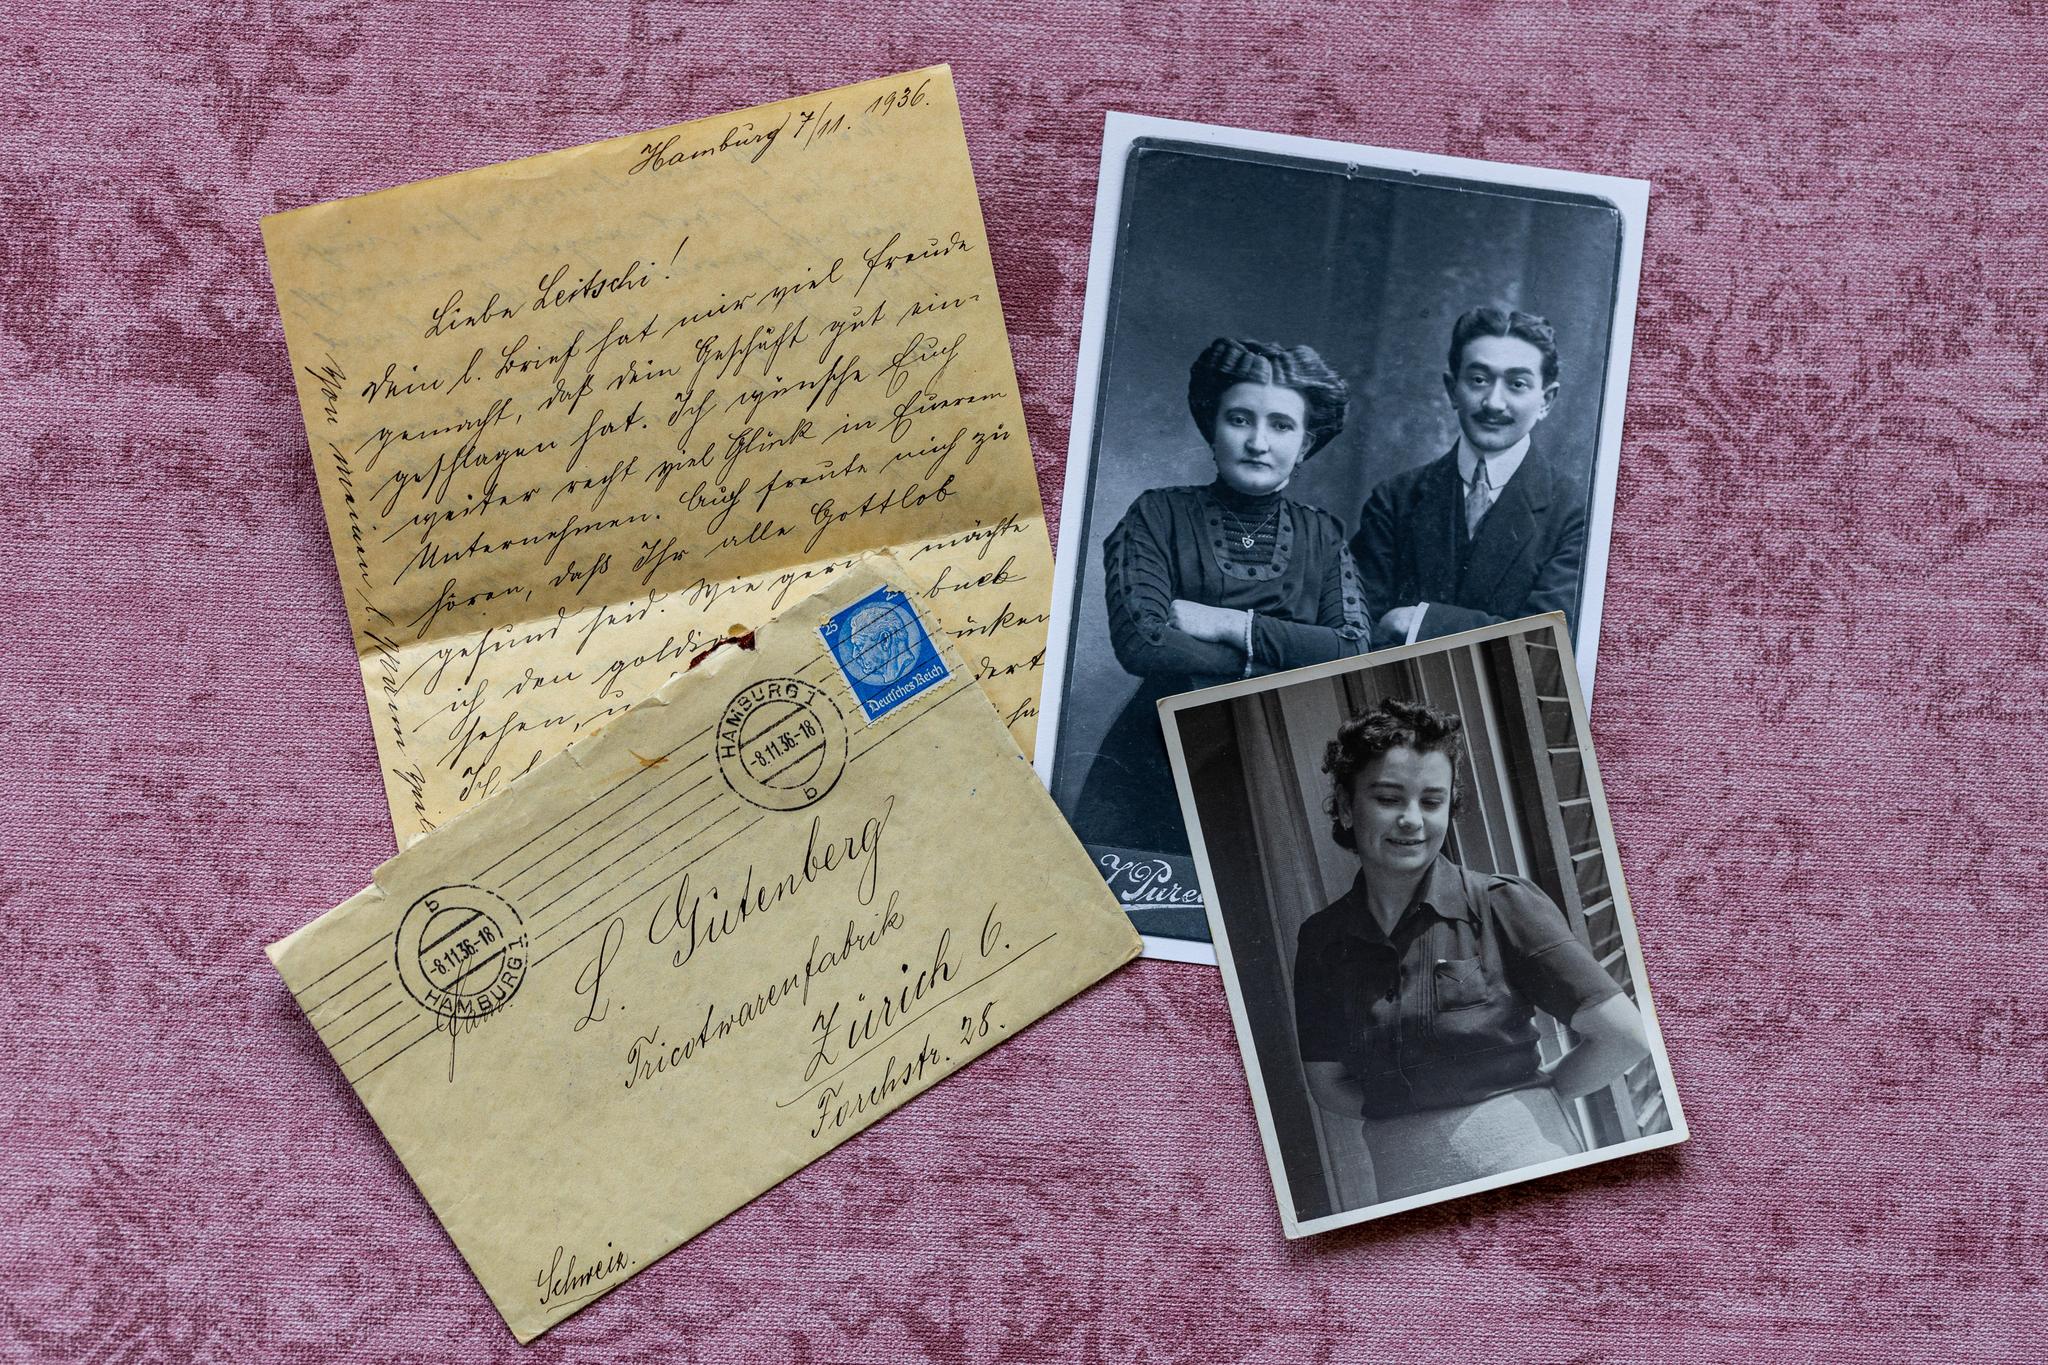 Hamburg 7/11. 1936.
Liebe Leitschi!
Dein l. Brief hat mir viel Freude
gemacht, daß dein Geschäft gut ein-
geschlagen hat. Ich wünsche Euch
weiter recht viel Glück in Euerem
Unternehmen. Auch freute mich zu
hören, daß Ihr alle Gottlob
gesund seid. Wie gern möchte
ich den goldi bueb
sehen, ücken
Ich
dert
Von meinen l.
25
Deutsches Reich
HAMBURG 1
-8.11.36.-18
b
b
-8.11.36.-18
HAMBURG 1
L. Gutenberg
Tricotwarenfabrik
Zürich 6.
Forchstr. 28.
Schweiz.